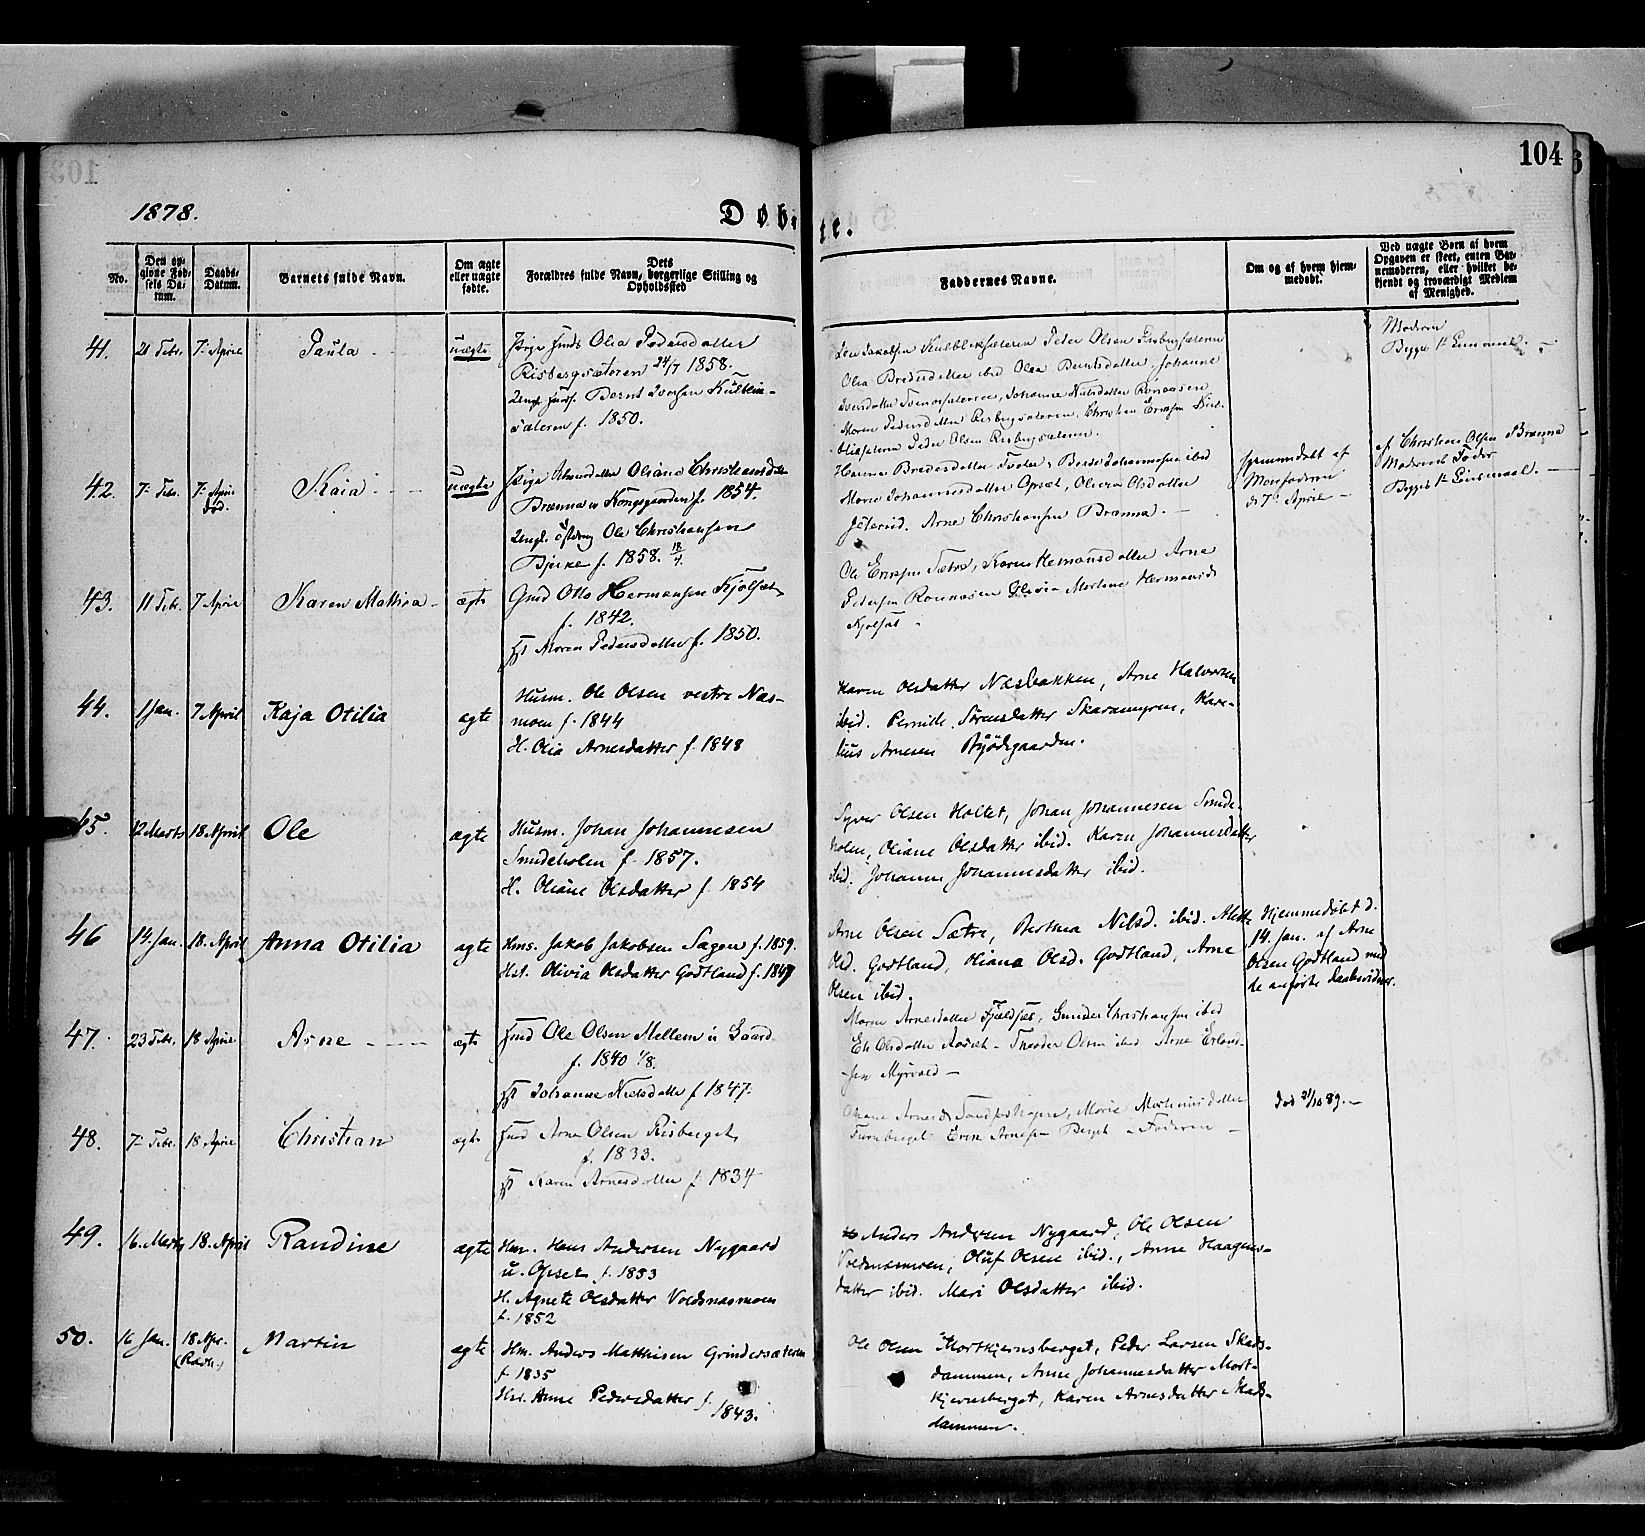 104
1878.
Døbte.
No.
Den opgivne Fødsels Datum.
Daabs-Datum.
Barnets fulde Navn.
Om ægte eller uægte fødte.
Dets Forældres fulde Navn, borgerlige Stilling og Opholdssted
Faddernes Navne.
Om og af hvem hjemmedøbt.
Ved uægte Børn af hvem Opgaven er skeet, enten Barnemoderen, eller hvilket bekjendt og troværdigt Medlem af Menighed.
41. 21 Febr. 7 April Paula uægte
Pige Olea Pedersdatter
Risbergsæteren 24/7 1858.
Ungk. Bernt Iversen
sæteren f. 1850.
Peder Olsen Risbergsæteren
Olea ibid Olea Berntsdatter, Johanne
Iversdatter Johanne Nilsdatter Rønaasen
Maren Pedersdatter Risbergsæteren, Christian Eriksen
Peder Olsen Risbergsæteren.
Moderen
42. 7 Febr. 7 April død. Kaia uægte
Pige Oliane Christiansdatter
Brænna u Kongsgaarden f. 1854.
Ungk. Ole Christiansen
Bjerke f. 1858. 18/4
Hanna Johannesen ibid
Maren Johannesdatter Opsæt, Olea Olsdatter
Arne Christiansen Brænna.
hjemmedøbt af
Morfaderen
d 7 April
af Christian Olsen Brænna
Moderens Fader
43. 11 Febr. 7 April Karen Mathea ægte
Gmd Otto Hermansen Kjølsæt
f. 1842.
H Maren Pedersdatter f. 1850.
Ole Eriksen Sætre, Karen Hermansdatter Arne
Pedersen Rønaasen Olivia Martine Hermansd
Kjølsæt
44. 1 Jan. 7 April Kaja Otilia ægte
Husm. Ole Olsen vestre Næs-
moen f. 1844
H. Olia Arnesdatter f. 1848
Karen Olsdatter Næsbakken, Arne Halvorsen
ibid. Pernille Sørensdatter Skaramyren, Kare-
lius Arnesen Bjødsgaarden.
45. 12 Marts 18 April Ole ægte
Husm. Johan Johannesen
Smideholen f. 1857.
H. Oliane Olsdatter f. 1854
Syver Olsen Holtet, Johan Johannesen Smide-
holen, Oliane Olsdatter ibid. Karen Johannesdatter
ibid. Johanne Johannesdatter ibid.
46 14. Jan. 18. April Anna Otilia ægte
Hms. Jakob Jakobsen Sagen f. 1859.
Hst. Olivia Olsdatter Godtland f. 1849
Arne Olsen Sætre, Berthea Nilsd. ibid. Mette
Olsd. Godtland, Oliana Olsd. Godtland, Arne
Olsen ibid.
Hjemmedøbt d.
14. Jan. af Arne
Olsen Godtland med
de anførte Daabsvidner.
47. 23 Febr. 18 April Arne ægte
Gmd Ole Olsen Mellem i Gaard
f. 1840 1/8.
H Johanne Nielsdatter f 1847.
Maren Arnesdatter Fjeldset, Gunder Christiansen ibid
Eli Olsdatter Aaset Theodor Olsen ibid Arne Erland-
sen Myrvold
48. 7 Febr. 18 April Christian ægte
Gmd Arne Olsen Risberget,
f. 1833.
H Karen Arnesdatter f 1834
Oliane Arnesd. Marie Martinusdatter
Furuberget Even Arnesen Berget Faderen
død 21/10 89.
49. 16. Marts 18. April Randine ægte
Hm. Hans Andersen Nygaard
u. Opset f. 1853
H. Agnete Olsdatter Voldsnæsmoen
f. 1852
Anders Andersen Nygaard, Ole Olsen
Voldsnæsmoen, Oluf Olsen ibid., Anne Haagens-
datter ibid. Mari Olsdatter ibid.
50. 16 Jan. 18 Apr. (Ravn.) Martin ægte
Hm. Anders Matthisen Grindersæteren
f. 1835
Hst. Anne Pedersdatter f.
1843.
Ole Olsen Mortkjernsberget, Peder Larsen Skads-
dammen, Anne Johannesdatter Mort-
kjernsberget, Karen Arnesdatter Skads-
dammen.